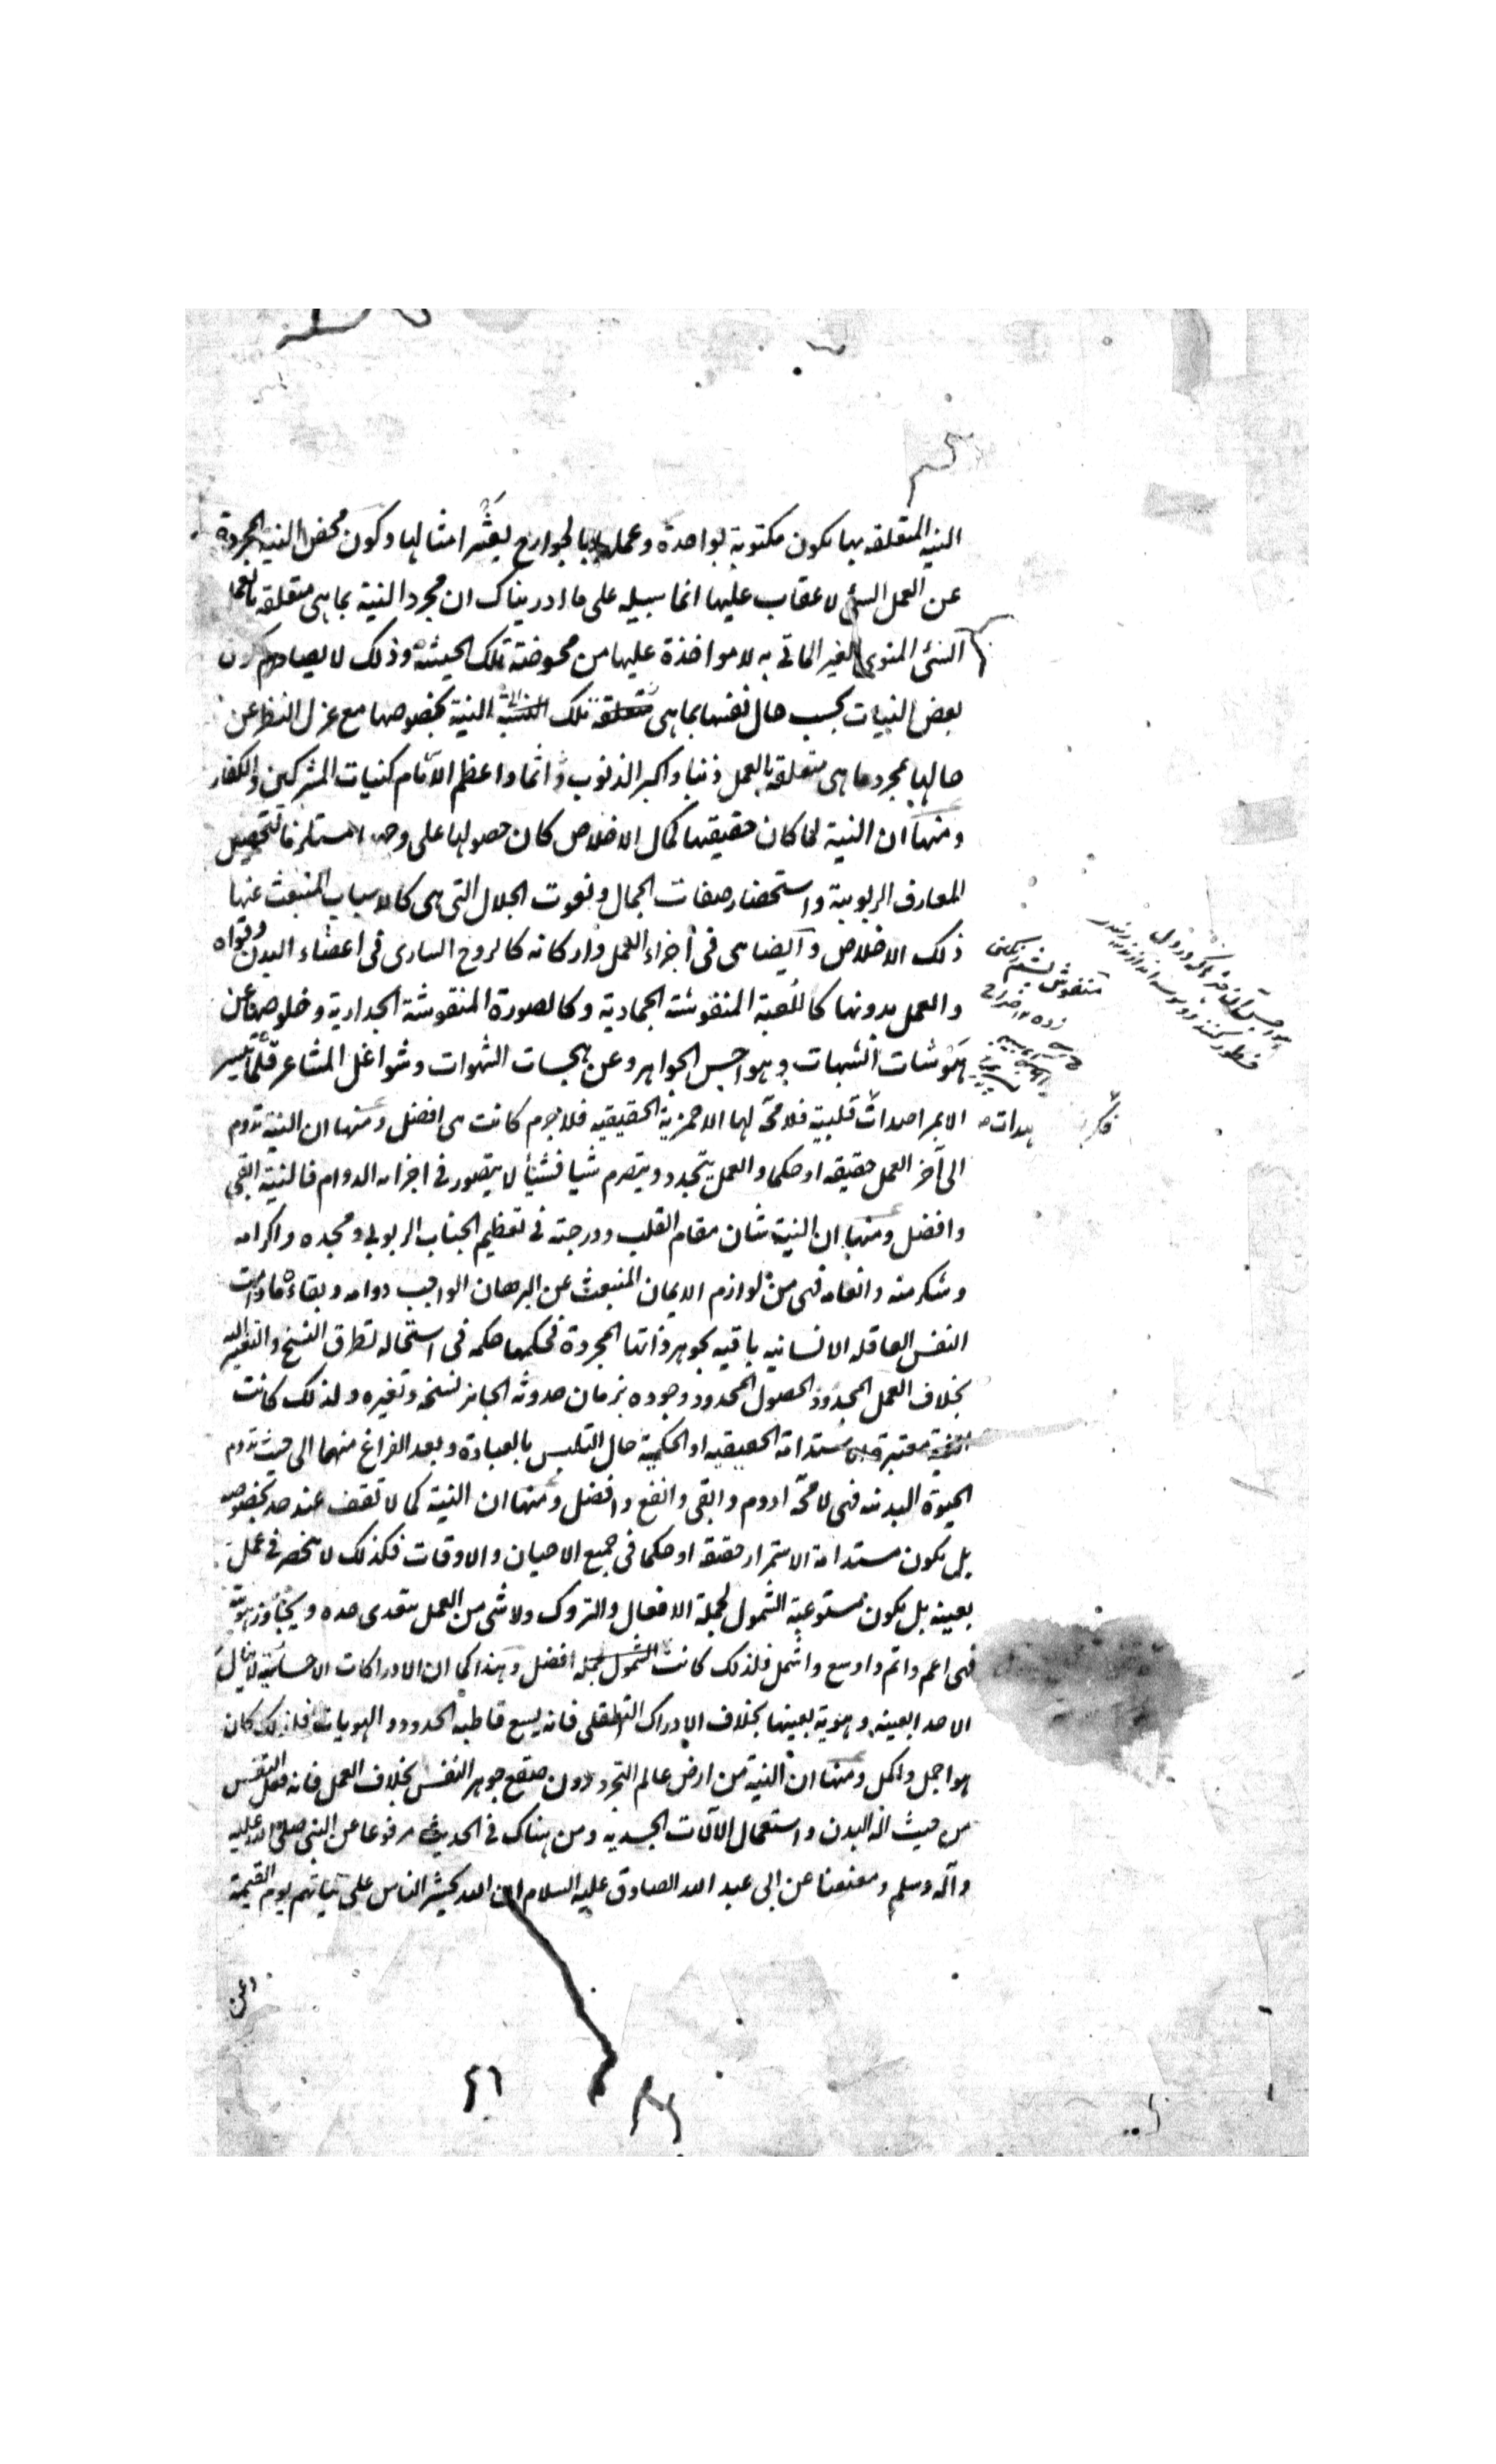 النية المتعلقه بها يكون مكتوبة بواحدة وعملها بالجوارح بعشر امثالها وكون محض النية المجردة
عن العمل السئ لا عقاب عليها انما سبيله على ما ادريناك ان مجرد النية بما هى متعلقه بالعمل
السئ المنوى الغير الماتى به لا مواخذة عليها من محوضته تلك الحيثية وذلك لا يصادم كون
بعض النيات بحسب حال نفسها بما هى تلك النية بخصوصها مع عزل النظر عن
حالها بمجرد ما هى متعلقه بالعمل ذنبا واكبر الذنوب واثما واعظم الآثام كنيات المشركين والكفار
ومنها ان النية لما كان حقيقتها كمال الاخلاص كان حصولها على وجهه مستلزما لتحصيل
المعارف الربوبية واستحضار صفات الجمال ونعوت الجلال التى هى كالاسباب المنبعث عنها
ذلك الاخلاص وايضا هى فى اجزاء العمل واركانه كالروح السارى فى اعضاء البدن وقواه
والعمل بدونها كاللعبة المنقوشة الجمادية وكالصورة المنقوشة الجدارية وخلوصها عن
مشوشات الشبهات وهواجس الجواهر وعن بهجات الشهوات وشواغل المشاعر قلما يتيسر
الا بمراصدات قلبية فلا محة لها الاحمزية الحقيقيه فلا جرم كانت هى افضل ومنها ان النية تدوم
الى آخر العمل حقيقه او حكما والعمل يتجدد ويتصرم شيا فشيأ لا يتصور فى اجزائه الدوام فالنية ابقى
وافضل ومنها ان النية شان مقام القلب ودرجته فى تعظيم الجناب الربوبى ومجده واكرامه
وشكر منه وانعامه فهى من لوازم الايمان المنبعث عن البرهان الواجب دوامه وبقاءه ما دامت
النفس العاقله الانسانيه باقيه بجوهر ذاتها المجردة فحكمها حكمه فى استحاله تطرق النسخ والتغير اليه
بخلاف العمل المجدود الحصول المحدود وجوده بزمان حدوثه الجائز نسخه وتغيره ولذلك كانت
النية معتبرة مستدامة الحقيقيه او الحكمية حال التلبس بالعبادة وبعد الفراغ منهما الى حيث تدوم
الحيوة البدنيه فهى لا محة ادوم وابقى وانفع وافضل ومنها ان النية كما لا تقف عند حد بخصوصه
بل يكون مستدامة الاستمرار حقيقه او حكما فى جميع الاحيان والاوقات فكذلك لا تنحصر فى عمل
بعينه بل يكون مستوعبة الشمول لجملة الافعال والتروك ولا شى من العمل يتعدى حده ويتجاوز هويته
فهى اعم واتم واوسع واشمل فلذلك كانت افضل وهذا كما ان الادراكات الاحساسية لا تنال
الا حدا بعينه وهوية بعينها بخلاف الادراك التعقلى فانه يسع قاطبه الحدود والهويات فلذلك كان
هو اجمل واكمل ومنها ان النية من ارض عالم التجرد دون صقع جوهر النفس بخلاف العمل فانه فعل النفس
من حيث الة البدن واستعمال الآلات الجسديه ومن هناك فى الحديث مرفوعا عن النبى صلى الله عليه
وآله وسلم ومعنعنا عن ابى عبد الله الصادق عليه السلام ان الله يحشر الناس على نياتهم يوم القيمة
وعن
٤٦